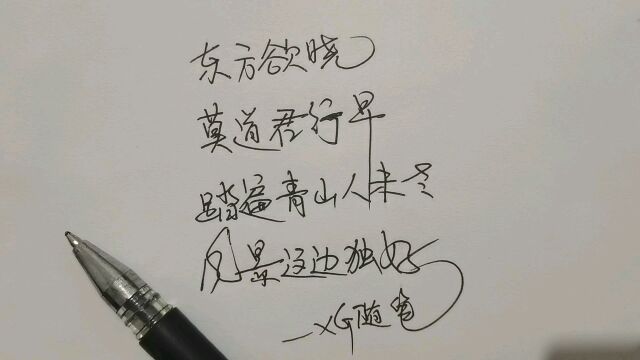 东方欲晓
莫道君行早
踏遍青山人未老
风景这边独好
—XG随笔